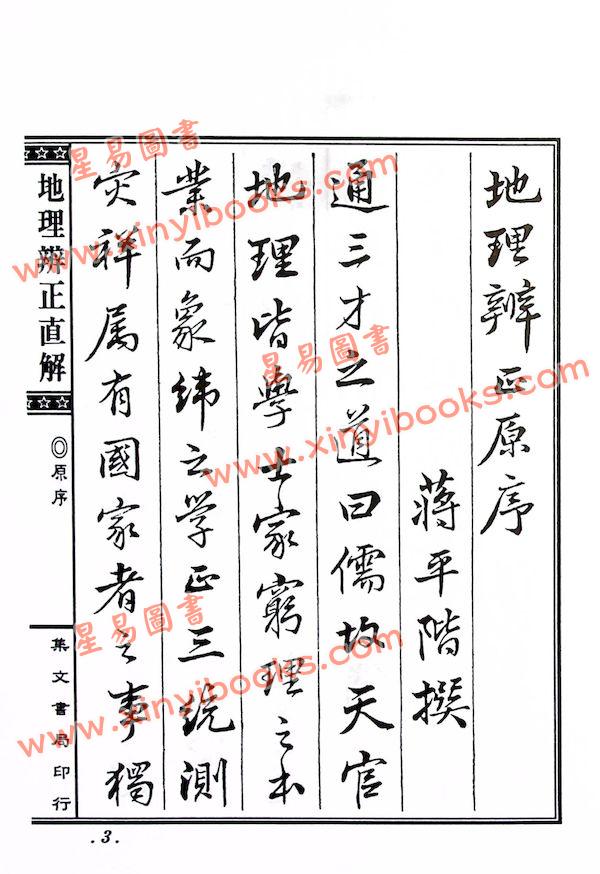 地理辨正原序
蔣平階撰
通三才之道曰儒故天官
地理皆學士家窮理之本
業而象緯之学正三統測
灾祥属有國家者之事獨
地理辨正直解
◎原序
集文書局印行
.3.
星易圖書
www.xinyibooks.com
星易圖書
www.xinyibooks.com
星易圖書
www.xinyibooks.com